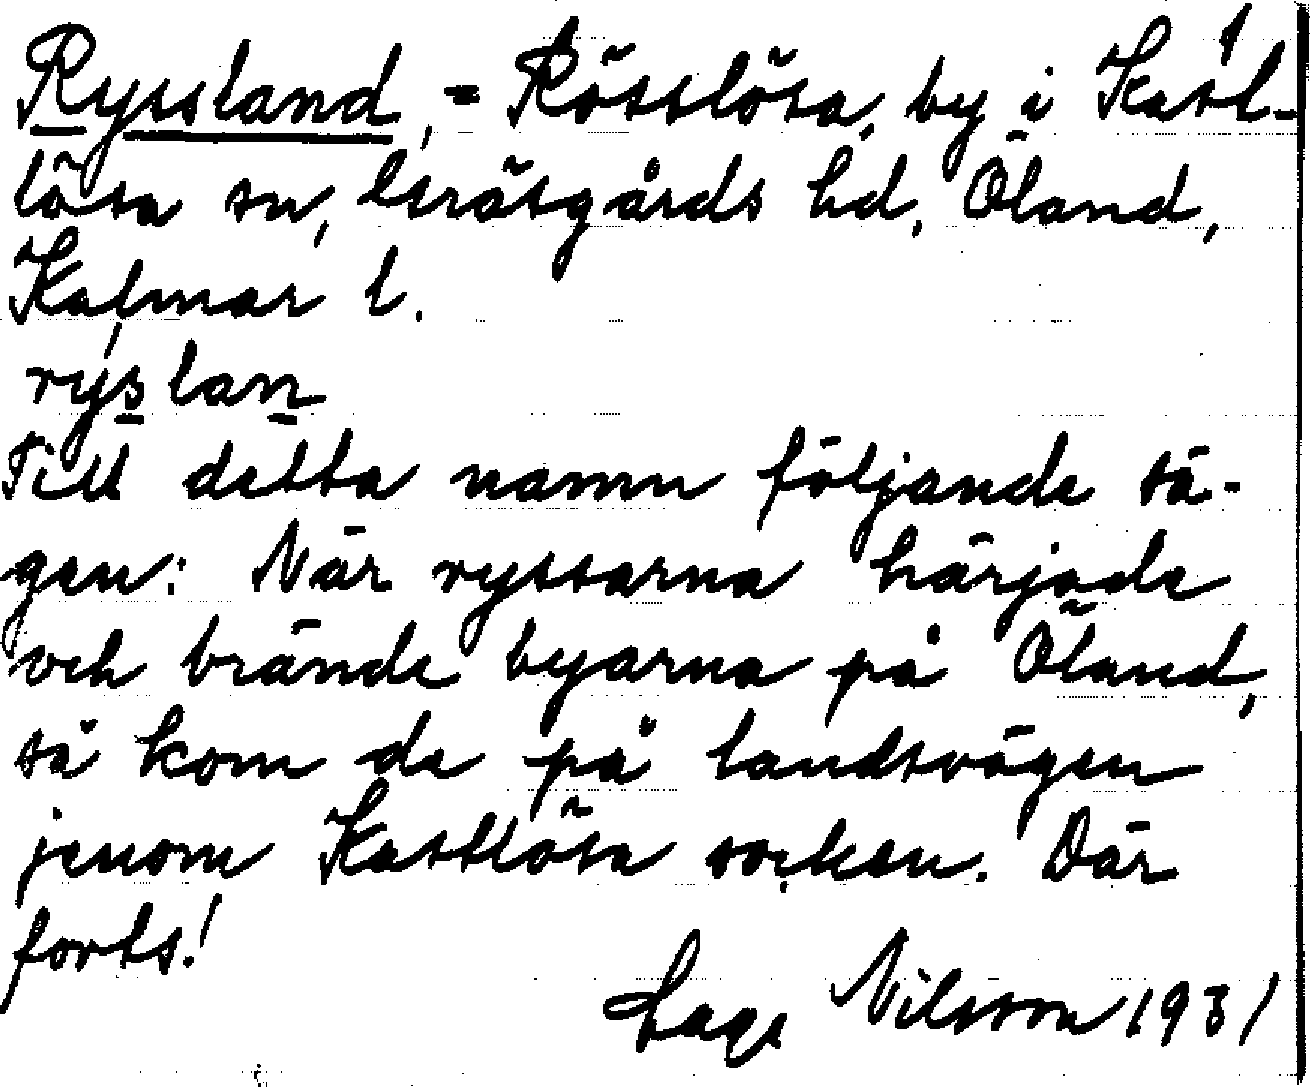 Ryssland, = Rösslösa, by i Kast-
lösa sn, Gräsgårds hd, Öland,
Kalmar l.
rýslan
Till detta namn följande sä-
gen: När ryssarna härjade
och brände byarna på Öland,
så kom de på landsvägen
jenom Kastlösa socken. Där
forts!
Lage Nilsson 1931